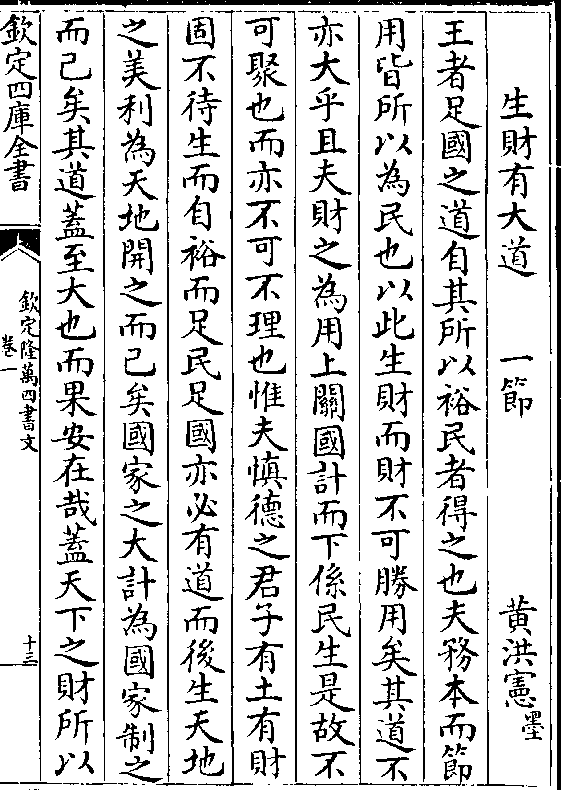 生財有大道　一節　黃洪憲墨
王者足國之道自其所以裕民者得之也夫務本而節
用皆所以為民也以此生財而財不可勝用矣其道不
亦大乎且夫財之為用上關國計而下係民生是故不
可聚也而亦不可不理也惟夫慎德之君子有土有財
固不待生而自裕而足民足國亦必有道而後生天地
之美利為天地開之而已矣國家之大計為國家制之
而已矣其道蓋至大也而果安在哉蓋天下之財所以
欽定四庫全書
欽定隆萬四書文
卷一
十三